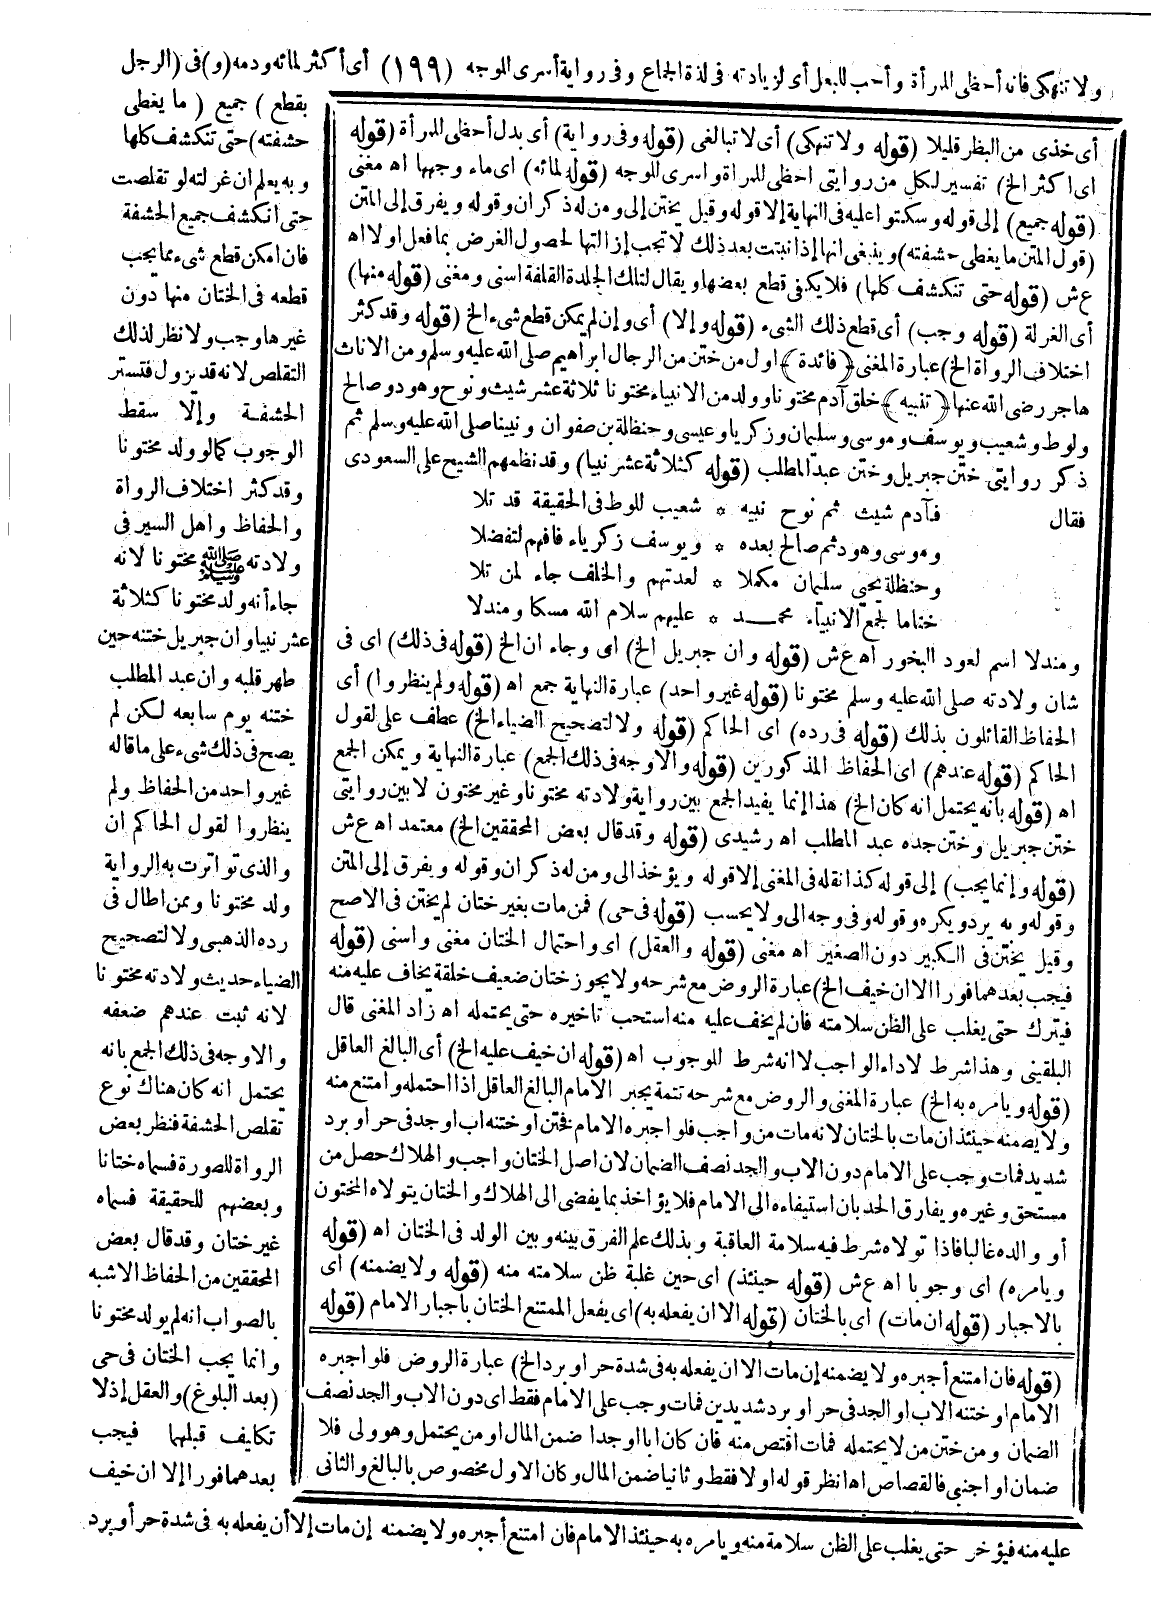 ولا تنهكى فانه أحظى للمرأة وأحب للبعل أى لزيادته فى لذة الجماع وفى رواية أسرى للوجه (١٩٩) أى أكثر لمائه ودمه (و) فى (الرجل
بقطع) جميع (ما يغطى
حشفته) حتى تنكشف كلها
وبه يعلم ان غرلته لو تقلصت
حتى انكشف جميع الحشفة
فان امكن قطع شىء مما يجب
قطعه فى الختان منها دون
غيرها وجب ولا نظر لذلك
التقلص لانه قد يزول فتستتر
الحشفة وإلا سقط
الوجوب كما لو ولد مختونا
وقد كثر اختلاف الرواة
والحفاظ واهل السير فى
ولادته ﷺ مختونا لانه
جاء أنه ولد مختونا كثلاثة
عشر نبيا وان جبريل ختنه حين
طهر قلبه وان عبد المطلب
ختنه يوم سابعه لكن لم
يصح فى ذلك شىء على ما قاله
غير واحد من الحفاظ ولم
ينظروا لقول الحاكم ان
والذى تواترت به الرواية
ولد مختونا وممن اطال فى
رده الذهبى ولا لتصحيح
الضياء حديث ولادته مختونا
لانه ثبت عندهم ضعفه
والاوجه فى ذلك الجمع بانه
يحتمل انه كان هناك نوع
تقلص الحشفة فنظر بعض
الرواة للصورة فسماه ختانا
وبعضهم للحقيقة فسماه
غير ختان وقد قال بعض
المحققين من الحفاظ الاشبه
بالصواب انه لم يولد مختونا
وانما يجب الختان فى حى
(بعد البلوغ) والعقل إذ لا
تكليف قبلهما فيجب
بعدهما فورا إلا ان خيف
عليه منه فيؤخر حتى يغلب على الظن سلامة منه ويامره به حينئذ الامام فان امتنع أجبره ولا يضمنه إن مات إلا أن يفعله به فى شدة حر أو برد
أى خذى من البظر قليلا (قوله ولا تنهكى) أى لا تبالغى (قوله وفى رواية) أى بدل أحظى للمرأة (قوله
اى اكثر الخ) تفسير لكل من روايتى احظى للمرأة واسرى للوجه (قوله لمائه) اى ماء وجهها اه مغنى
(قوله جميع) إلى قوله وسكتوا عليه فى النهاية إلا قوله وقيل يختن إلى ومن له ذكران وقوله ويفرق إلى المتن
(قول المتن ما يغطى حشفته) وينبغى انها إذا نبتت بعد ذلك لا تجب إزالتها لحصول الغرض بما فعل اولا اه
ع ش (قوله حتى تنكشف كلها) فلا يكفى قطع بعضها ويقال لتلك الجلدة القلفة اسنى ومغنى (قوله منها)
أى الغرلة (قوله وجب) أى قطع ذلك الشىء (قوله وإلا) أى وإن لم يمكن قطع شىء الخ (قوله وقد كثر
اختلاف الرواة الخ) عبارة المغنى ﴿فائدة﴾ اول من ختن من الرجال ابراهيم صلى الله عليه وسلم ومن الاناث
هاجر رضى الله عنها ﴿تنبيه﴾ خلق آدم مختونا وولد من الانبياء مختونا ثلاثة عشر شيث ونوح وهود وصالح
ولوط وشعيب ويوسف وموسى وسليمان وزكريا وعيسى وحنظلة بن صفوان ونبينا صلى الله عليه وسلم ثم
ذكر روايتى ختن جبريل وختن عبد المطلب (قوله كثلاثة عشر نبيا) وقد نظمهم الشيخ على السعودى
فقال فآدم شيث ثم نوح نبيه * شعيب للوط فى الحقيقة قد تلا
وموسى وهود ثم صالح بعده * ويوسف زكرياء فافهم لتفضلا
وحنظلة يحيى سليمان مكملا * لعدتهم والخلف جاء لمن تلا
ختاما لجمع الانبياء محمد * عليهم سلام الله مسكا ومندلا
ومندلا اسم لعود البخور اه ع ش (قوله وان جبريل الخ) اى وجاء ان الخ (قوله فى ذلك) اى فى
شان ولادته صلى الله عليه وسلم مختونا (قوله غير واحد) عبارة النهاية جمع اه (قوله ولم ينظروا) أى
الحفاظ القائلون بذلك (قوله فى رده) اى الحاكم (قوله ولا لتصحيح الضياء الخ) عطف على لقول
الحاكم (قوله عندهم) اى الحفاظ المذكورين (قوله والاوجه فى ذلك الجمع) عبارة النهاية ويمكن الجمع
اه (قوله بانه يحتمل انه كان الخ) هذا إنما يفيد الجمع بين رواية ولادته مختونا وغير مختون لا بين روايتى
ختن جبريل وختن جده عبد المطلب اه رشيدى (قوله وقد قال بعض المحققين الخ) معتمد اه ع ش
(قوله وإنما يجب) إلى قوله كذا نقله فى المغنى إلا قوله ويؤخذ الى ومن له ذكران وقوله ويفرق إلى المتن
وقوله وبه يرد ويكره وقوله وفى وجه الى ولا يحسب (قوله فى حى) فمن مات بغير ختان لم يختن فى الاصح
وقيل يختن فى الكبير دون الصغير اه مغنى (قوله والعقل) اى واحتمال الختان مغنى واسنى (قوله
فيجب بعدهما فورا الا ان خيف الخ) عبارة الروض مع شرحه ولا يجوز ختان ضعيف خلقة يخاف عليه منه
فيترك حتى يغلب على الظن سلامته فان لم يخف عليه منه استحب تاخيره حتى يحتمله اه زاد المغنى قال
البلقينى وهذا شرط لاداء الواجب لا انه شرط للوجوب اه (قوله ان خيف عليه الخ) أى البالغ العاقل
(قوله ويامره به الخ) عبارة المغنى والروض مع شرحه تتمة يجبر الامام البالغ العاقل اذا احتمله وامتنع منه
ولا يضمنه حينئذ ان مات بالختان لانه مات من واجب فلو اجبره الامام فختن او ختنه اب او جد فى حر او برد
شديد فمات وجب على الامام دون الاب والجد نصف الضمان لان اصل الختان واجب والهلاك حصل من
مستحق وغيره ويفارق الحد بان استيفاءه الى الامام فلا يؤاخذ بما يفضى الى الهلاك والختان يتولاه المختون
أو والده غالبا فاذا تولاه شرط فيه سلامة العاقبة وبذلك علم الفرق بينه وبين الولد فى الختان اه (قوله
ويامره) اى وجوبا اه ع ش (قوله حينئذ) اى حين غلبة ظن سلامته منه (قوله ولا يضمنه) اى
بالاجبار (قوله ان مات) اى بالختان (قوله الا ان يفعله به) اى يفعل الممتنع الختان باجبار الامام (قوله
(قوله فان امتنع أجبره ولا يضمنه إن مات الا ان يفعله به فى شدة حر او برد الخ) عبارة الروض فلو اجبره
الامام او ختنه الاب او الجد فى حر او برد شديدين فمات وجب على الامام فقط اى دون الاب والجد نصف
الضمان ومن ختن من لا يحتمله فمات اقتص منه فان كان ابا او جدا ضمن المال او من يحتمل وهو ولى فلا
ضمان او اجنبى فالقصاص اه انظر قوله اولا فقط وثانيا ضمن المال وكان الاول مخصوص بالبالغ والثانى